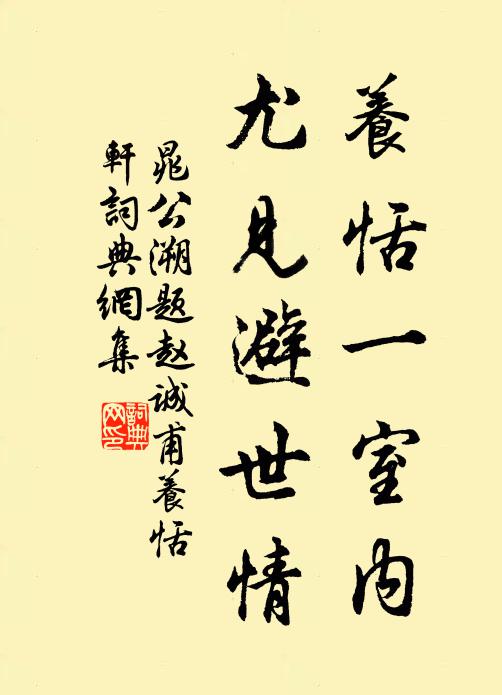 養恬一室内
尤見避世情
晁公溯題赵诚甫養恬
軒詞典網集
詞典
网印